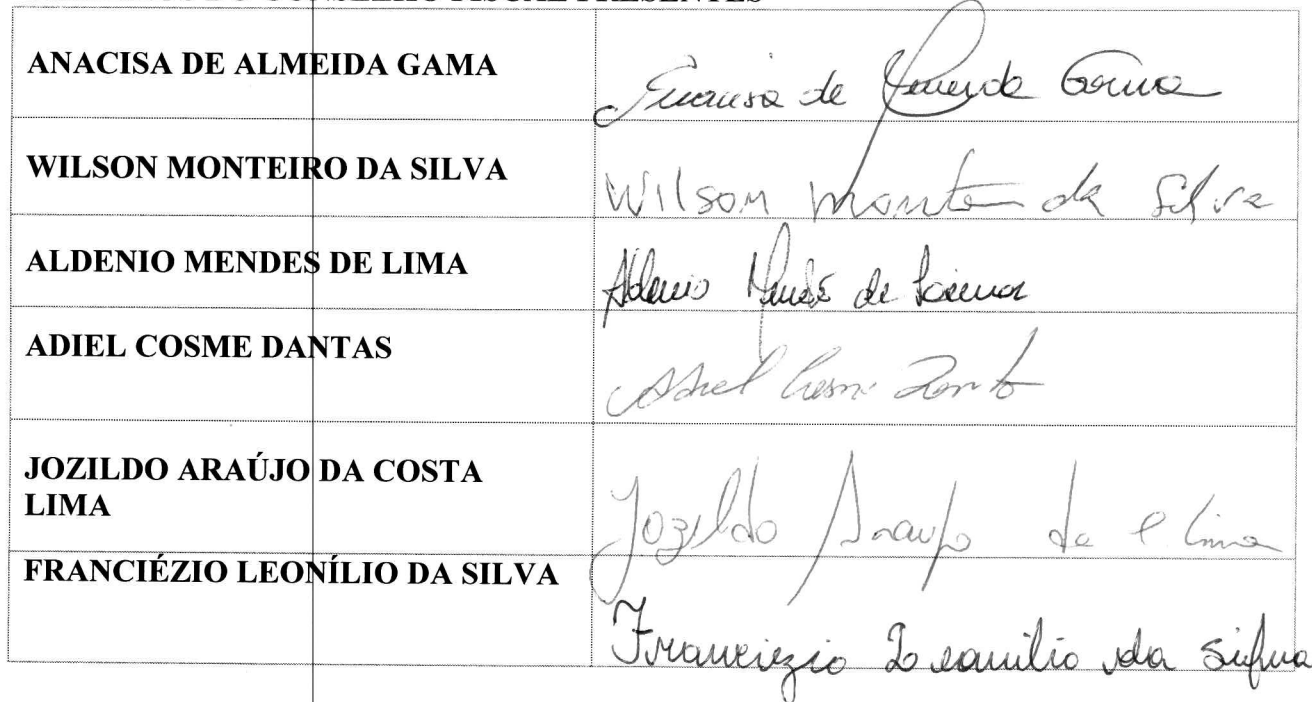 CONSELHO FISCAL PRESENTES
ANACISA DE ALMEIDA GAMA
de Gama
WILSON MONTEIRO DA SILVA
Wilson da Silva
ALDENIO MENDES DE LIMA
Aldenio Mendes de Lima
ADIEL COSME DANTAS
Adiel Cosme
JOZILDO ARAÚJO DA COSTA
LIMA
Jozildo Araujo da C Lima
FRANCIÉZIO LEONÍLIO DA SILVA
Franciezio Leonilio da Silva